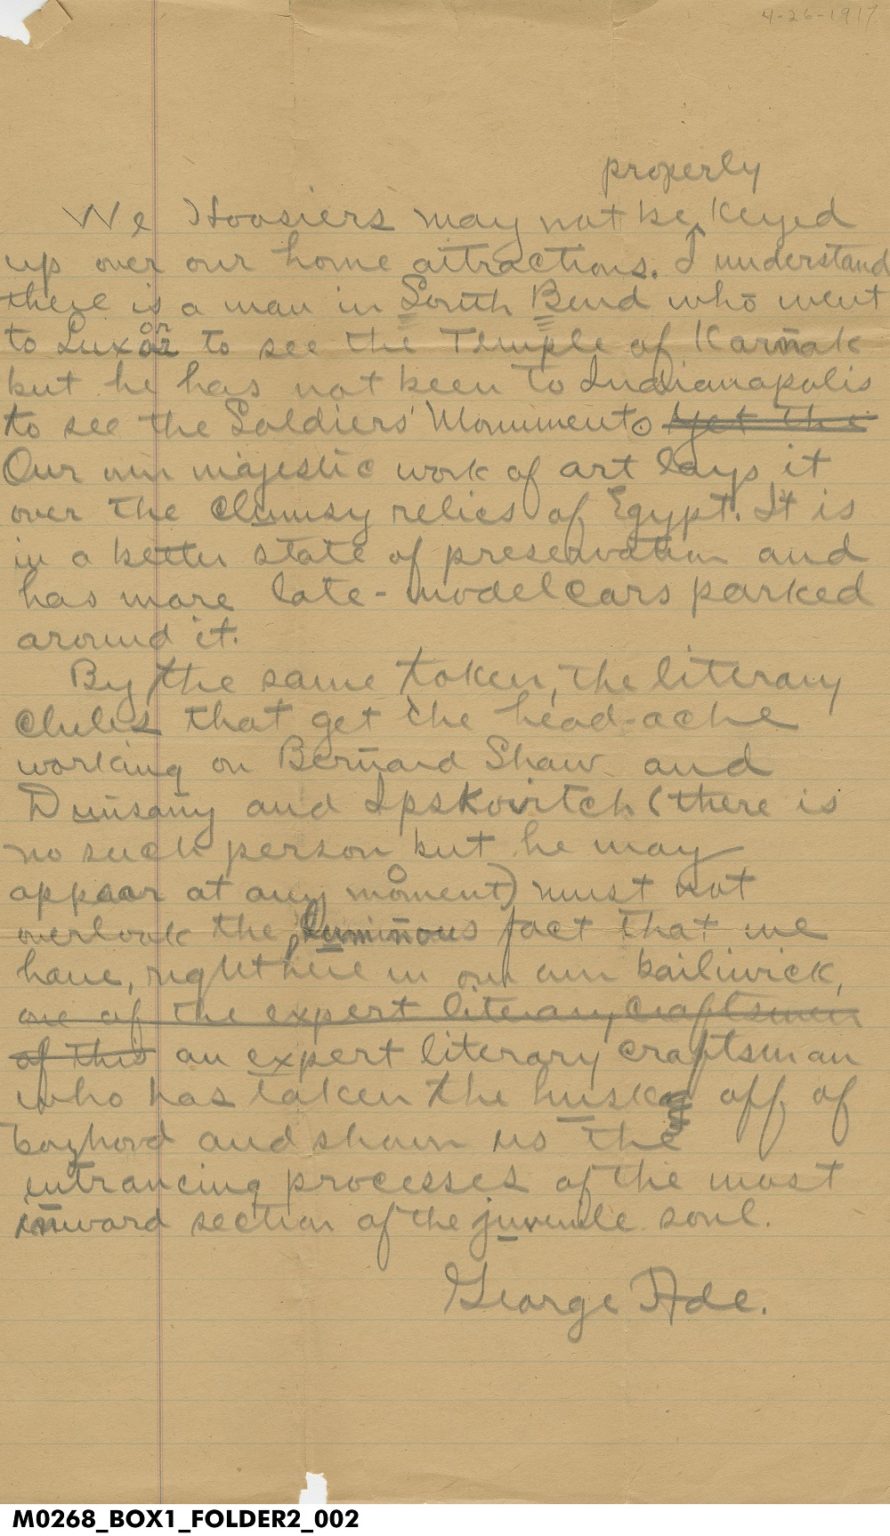 4-26-1917
properly
We Hoosiers may not be keyed
up over our home attractions. I understand
there is a man in South Bend who went
to Luxor to see the Temple of Karnak
but he has not been to Indianapolis
to see the Soldiers' Monument. Yet the
Our own majestic work of art lays it
over the clumsy relics of Egypt. It is
in a better state of preservation and
has more late-model cars parked
around it.
By the same token, the literary
clubs that get the head-ache
working on Bernard Shaw and
Dunsany and Ipskovitch (there is
no such person but he may
appear at any moment) must not
overlook the luminous fact that we
have, right here in our own bailiwick,
one of the expert literary craftsmen
of this an expert literary craftsman
who has taken the husk off of
boyhood and shown us the
entrancing processes of the most
inward section of the juvenile soul.
George Ade.
M0268_BOX1_FOLDER2_002